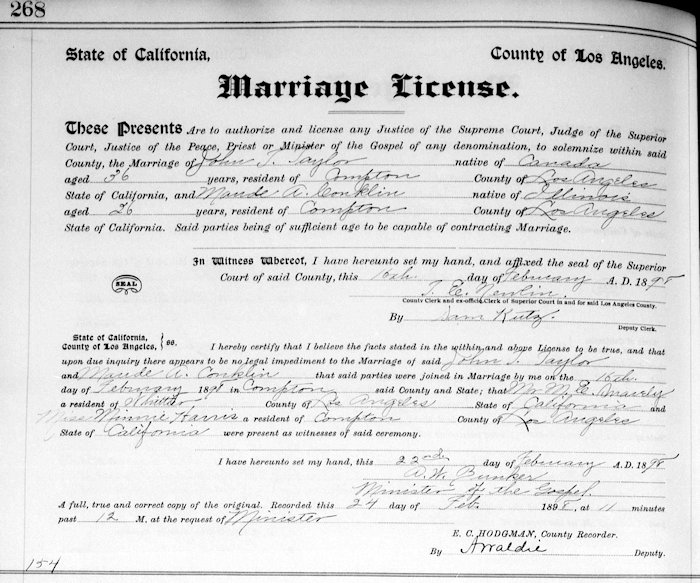 268
State of California, County of Los Angeles.
Marriage License.
These Presents Are to authorize and license any Justice of the Supreme Court, Judge of the Superior
Court, Justice of the Peace, Priest or Minister of the Gospel of any denomination, to solemnize within said
County, the Marriage of John T. Taylor native of Canada
aged 36 years, resident of Compton County of Los Angeles
State of California, and Maude A. Conklin native of Illinois
aged 26 years, resident of Compton County of Los Angeles
State of California. Said parties being of sufficient age to be capable of contracting Marriage.
In Witness Whereof, I have hereunto set my hand, and affixed the seal of the Superior
Court of said County, this 16th day of February A. D. 1898
SEAL
T. E. Newlin.
County Clerk and ex-officio Clerk of Superior Court in and for said Los Angeles County.
By Sam Kutz.
Deputy Clerk.
State of California,
County of Los Angeles, } ss. I hereby certify that I believe the facts stated in the within and above License to be true, and that
upon due inquiry there appears to be no legal impediment to the Marriage of said John T. Taylor
and Maude A. Conklin that said parties were joined in Marriage by me on the 16th
day of February 1898 in Compton said County and State; that M. E.
a resident of Whittier County of Los Angeles State of California and
Minnie Harris a resident of Compton County of Los Angeles
State of California were present as witnesses of said ceremony.
I have hereunto set my hand, this 22nd day of February A. D. 1898
A. W. Bunker
Minister of the Gospel.
A full, true and correct copy of the original. Recorded this 24 day of Feb. 1898, at 11 minutes
past 12 M. at the request of Minister
E. C. HODGMAN, County Recorder.
By Deputy.
154